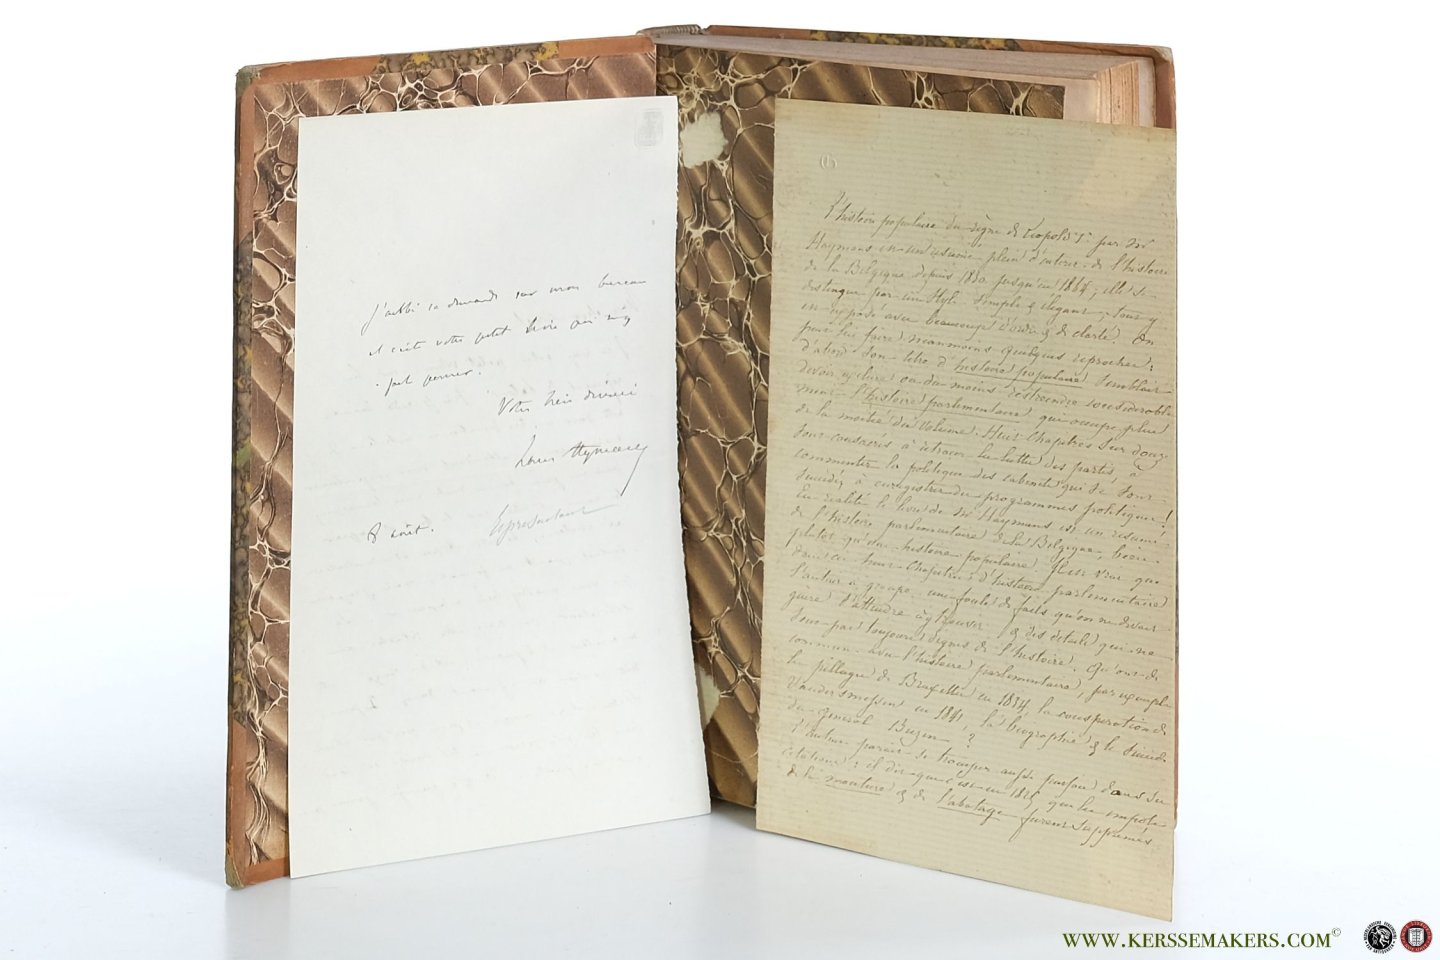 sur mon bureau
votre petit livre qui m'a
fait penser.
Votre bien dévoué
Louis Hymans
8 août.
(1)
L'histoire populaire du règne de Léopold 1er par Mr
Haymans est un résumé plein d'interet de l'histoire
de la Belgique depuis 1830 jusqu'en 1864; elle se
distingue par un style simple & élégant; tout y
est exposé avec beaucoup d'ordre & de clarté. On
peut lui faire néanmoins quelques reproches:
d'abord son titre d'histoire populaire semblait
devoir exclure ou du moins restreindre considerable
ment l'histoire parlementaire qui occupe plus
de la moitié du volume. Huit chapitres sur douze
sont consacrés à retracer la lutte des partis, à
commenter la politique des cabinets qui se sont
succédés à enregistrer des programmes politiques!
En realité le livre de Mr Haymans est un résumé
de l'histoire parlementaire de la Belgique, bien
plutôt qu'une histoire populaire. Il est vrai que
dans ces huit chapitres d'histoire parlementaire
l'auteur a groupé une foule de faits qu'on ne devait
guère s'attendre à y trouver & des détails qui ne
sont pas toujours dignes de l'histoire. Qu'ont de
commun avec l'histoire parlementaire, par exemple
le pillage de Bruxelles en 1834, la conspiration de
Vandersmissen en 1841, la biographie & le suicide
du général Buzen?
l'auteur parait se tromper aussi parfois dans ses
citations: il dit que c'est en 1825 que les impots
de la mouture & de l'abatage furent supprimés.
WWW.KERSSEMAKERS.COM©